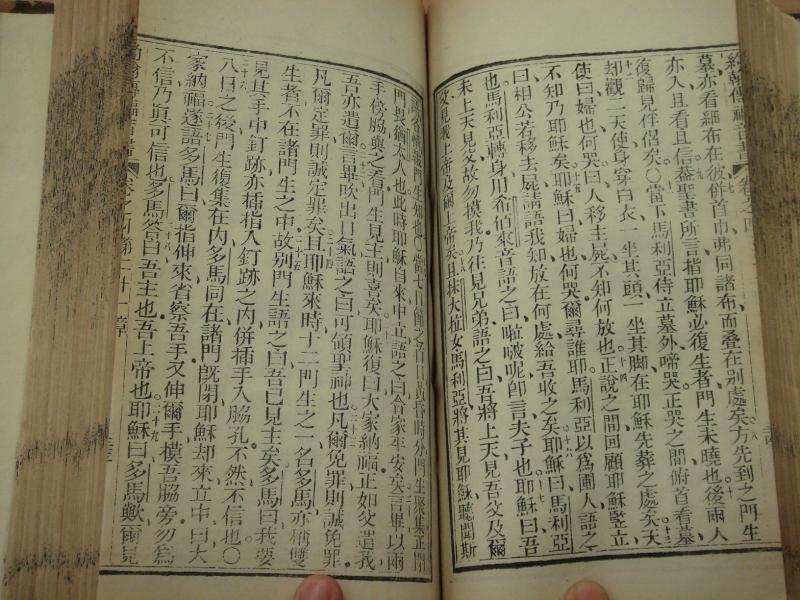 約翰傳福音書 卷之四
墓亦看細布在彼併首巾弗同諸布而叠在別處矣方先到之門生
亦人且看且信葢聖書所言指耶穌必復生者門生未曉也後兩人
復歸見伴侶矣○當下馬利亞侍立墓外啼哭正哭之間俯首看墓
却觀二天使身穿白長一坐其頭一坐其脚在耶穌先葬之處矣天
使曰婦也何哭曰人移主屍不知何放也正說之間回顧耶穌竪立
不知乃耶穌矣耶穌曰婦也何哭爾尋誰耶馬利亞以爲圃人語之
曰相公若移去屍請語我知放在何處給吾收之矣耶穌曰馬利亞
也馬利亞轉身用希伯來音語之曰啦啵呢卽言夫子也耶穌曰吾
未上天見父故勿模我乃往見兄弟語之曰吾將上天見吾父及爾
父見我上帝及爾上帝矣且抹大拉女馬利亞將其見耶穌聽聞斯
門生知也○當七日節之首日黃昏時分門生聚集正閉
門畏猶太人也此時耶穌自來中立語之曰合家平安矣言畢以兩
手傍脇與之看門生見主則喜矣耶穌復曰大家納福正如父遣我
吾亦遣爾言畢吹出口氣語之曰可領聖神也凡爾免罪則誠免罪
凡爾定罪則誠定罪矣且耶穌來時十二門生之一名多馬亦稱雙
生者不在諸門生之中故別門生語之曰吾已見主矣多馬曰我要
見其手中釘跡亦插指入釘跡之內併揷手入脇孔不然不信也○
八日之後門生復集在內多馬同在諸門旣閉耶穌却來立中曰大
家納福遂語多馬曰爾指伸來省察吾手又伸爾手模吾脇旁勿爲
不信乃眞可信也多馬答曰吾主也吾上帝也耶穌曰多馬歟爾見